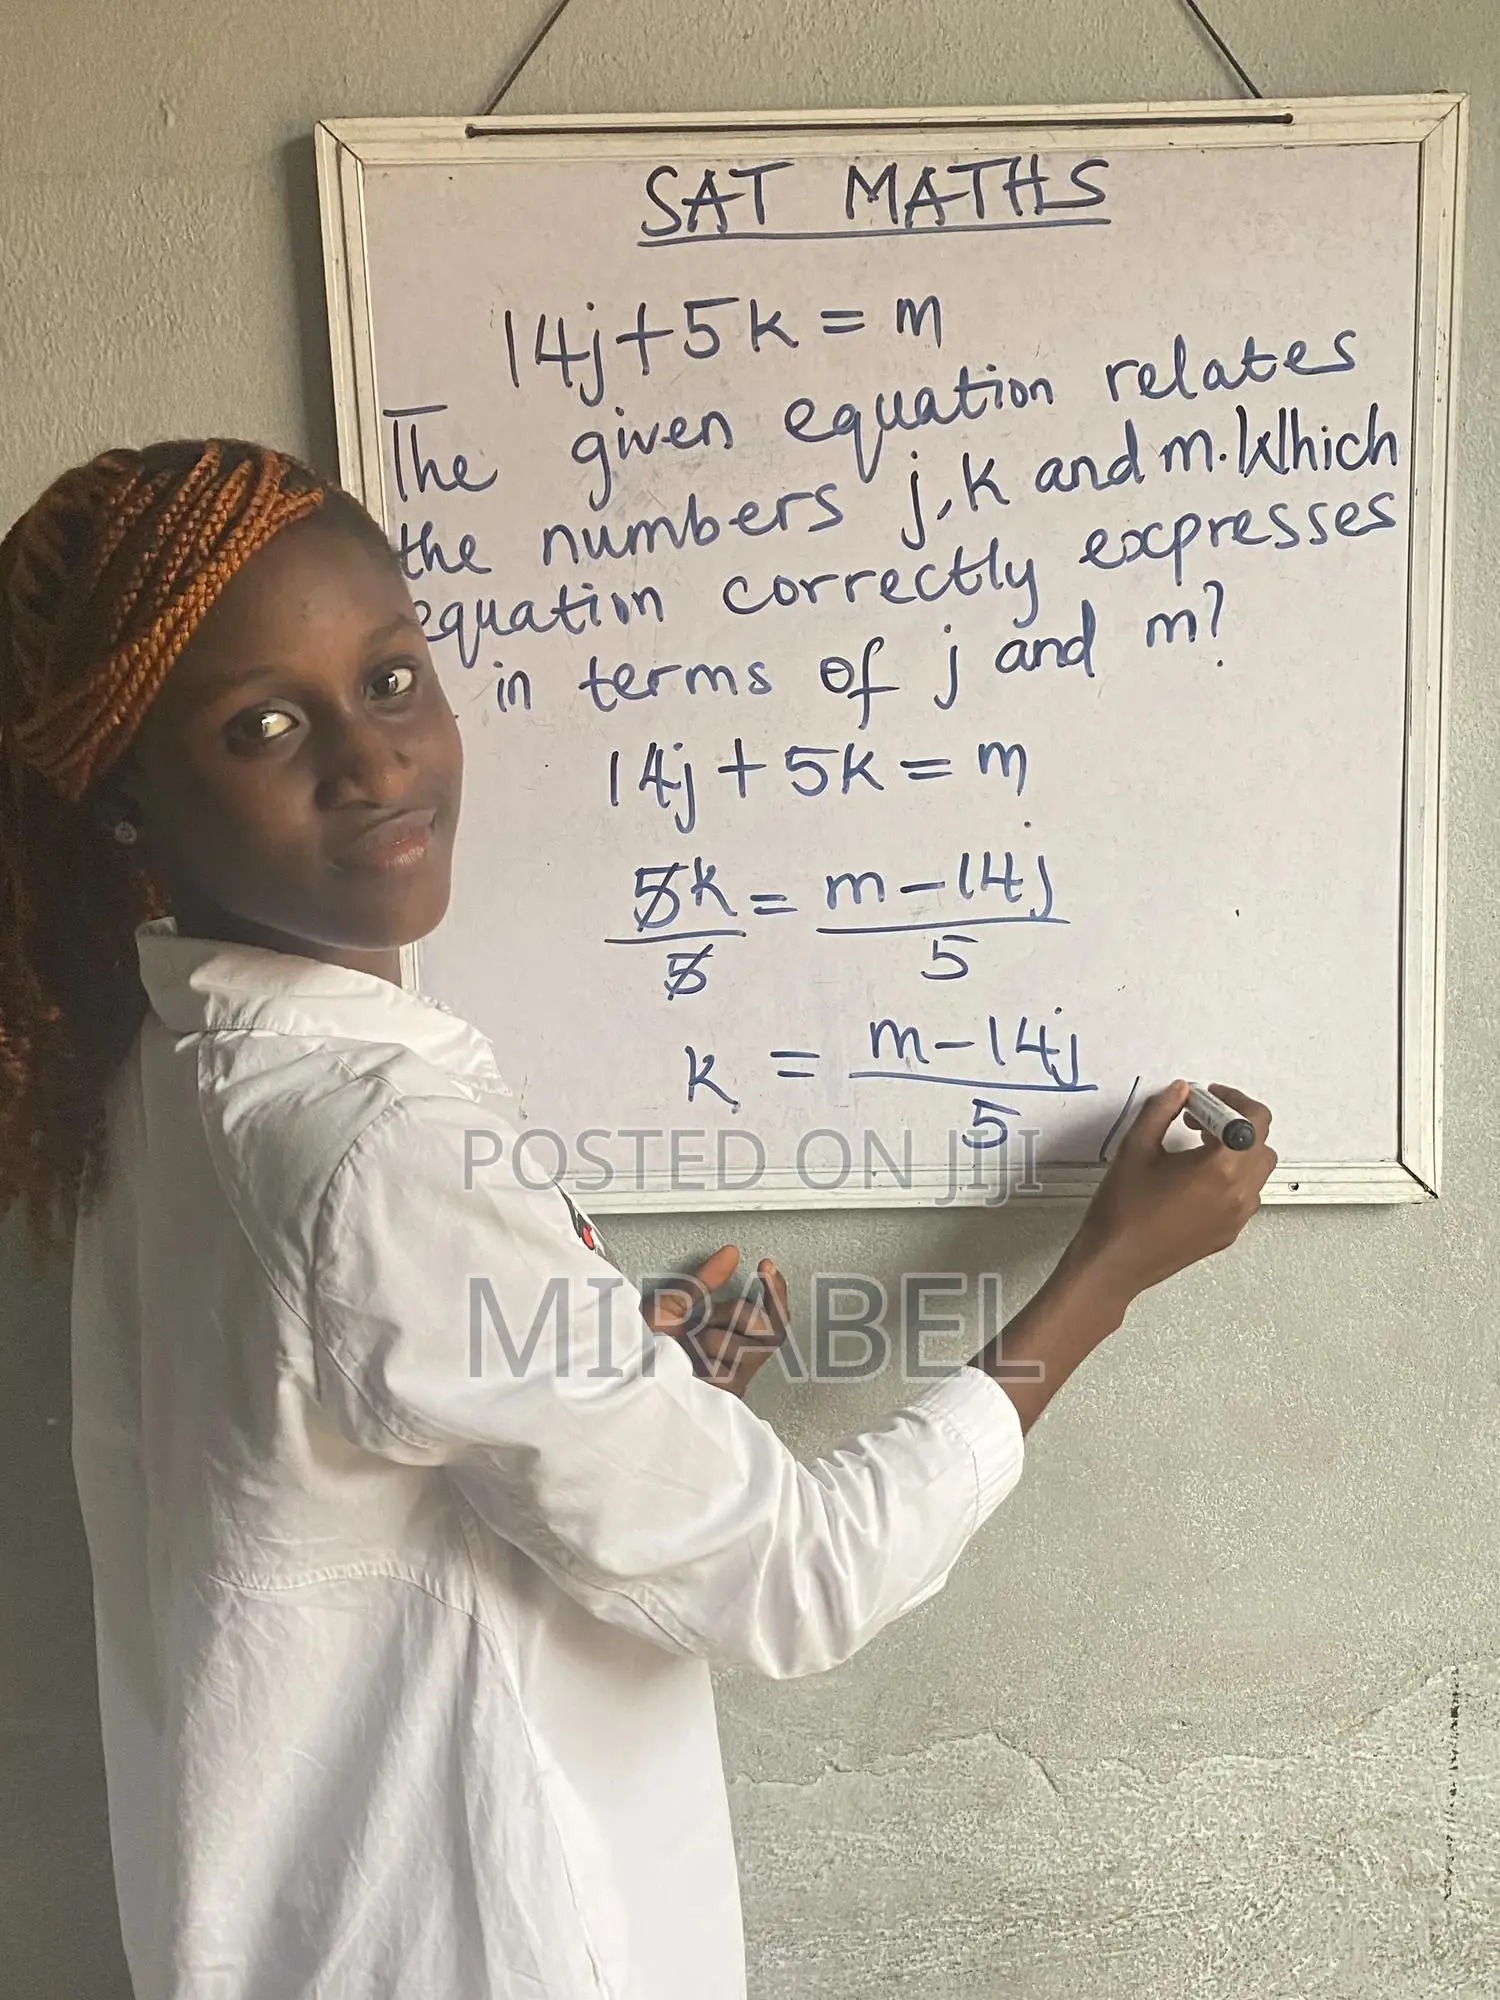 SAT MATHS
14j+5k=m
The given equation relates
the numbers j,k and m. Which
equation correctly expresses
in terms of j and m?
14j+5k=m
5k/5 = m-14j/5
k = m-14j/5
POSTED ON JIJI
MIRABEL